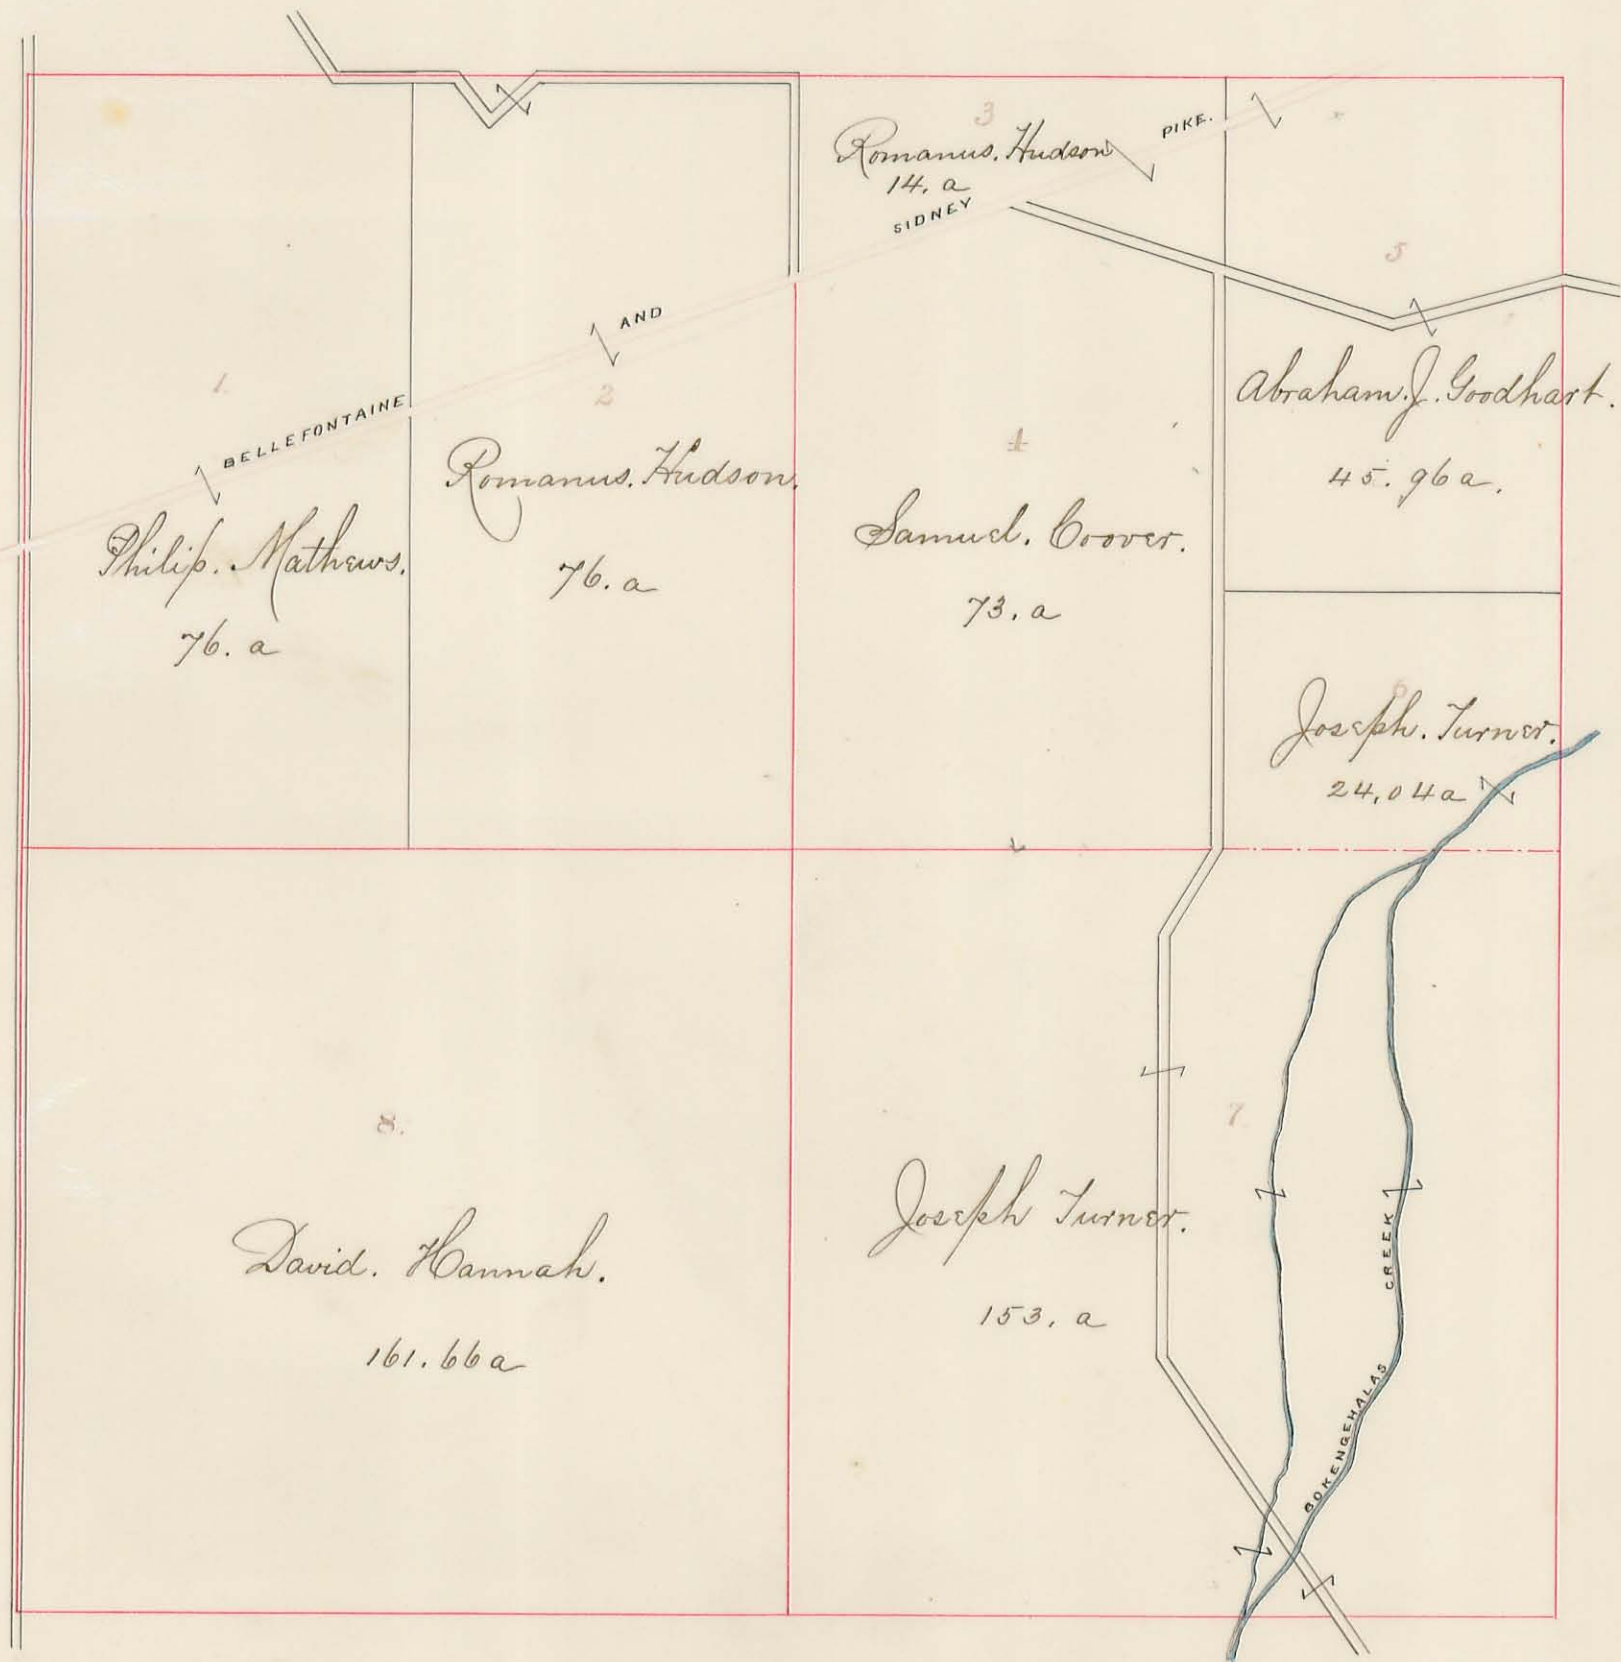 3
Romanus. Hudson
14. a
BELLEFONTAINE AND SIDNEY PIKE.
1.
Philip. Mathews.
76. a
2
Romanus. Hudson.
76. a
4
Samuel. Coover.
73. a
5
Abraham. J. Goodhart.
45. 96 a.
6
Joseph. Turner.
24,04 a
8.
David. Hannah.
161. 66 a
7.
Joseph Turner.
153. a
BOKENGEHALAS CREEK